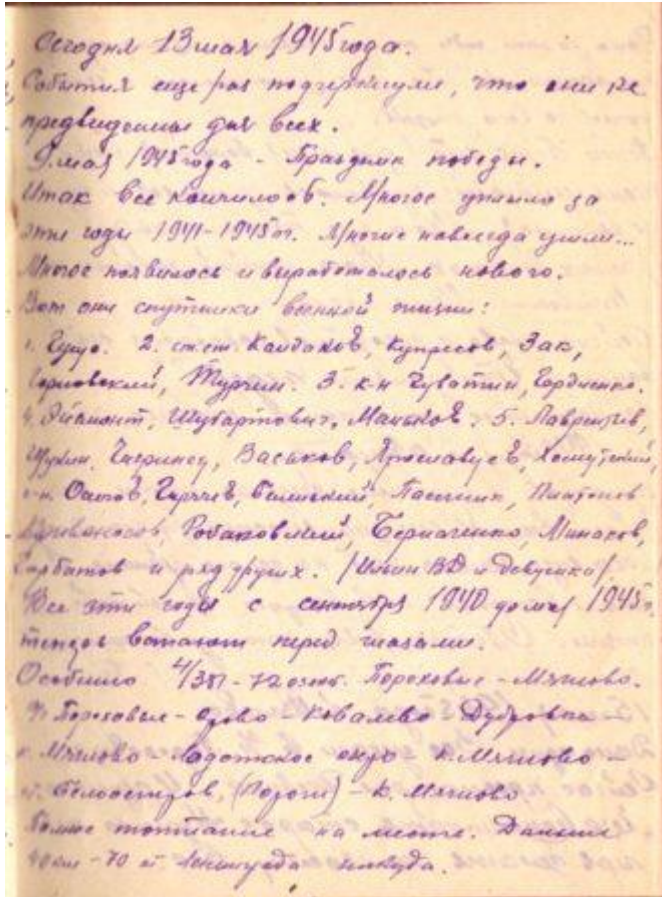 Сегодня 13 мая 1945 года.
События еще раз подчеркнули, что они не
предвиденны для всех.
9 мая 1945 года - Праздник победы.
Итак все кончилось. Многое ушло за
эти годы 1941-1945 гг. Многие навсегда ушли...
Многое появилось и выработалось нового.
Вот они спутники военной жизни:
1. 2. ст. Калдаков, Купресов, Зак,
Турчин. 3. к-н Чуватин, Гордиенко.
4. Шубартович, Маньков, 5. Лаврентьев,
Щукин, Васьков, Ярославцев, Хомутский,
Осипов, Горячев, Пасечник, Платонов
Кривоносов, Робаковский, Терпаченко, Минаков,
Горбатов и ряд других. /Ильин ВД и Девушка/
Все эти годы с сентября 1940 до мая 1945 г.
встают перед глазами.
Особенно 4/351 - 72 Пороховые - Мяглово.
Пороховые - Озово - Ковалево - Дубровка -
к. Мяглово - Ладожское озеро к. Мяглово -
Белоостров, (Пороги) - к. Мяглово
Полное топтание на месте. Дальше
40 км - 70 от Ленинграда никуда.